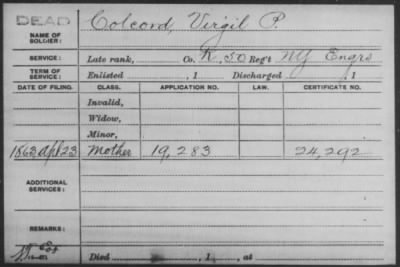 DEAD
NAME OF SOLDIER: Colcord, Virgil P.
SERVICE: Late rank, Co. K, 50 Reg't NY Engrs
TERM OF SERVICE: Enlisted , 1 Discharged , 1
DATE OF FILING. CLASS. APPLICATION NO. LAW. CERTIFICATE NO.
Invalid,
Widow,
Minor,
1863, Apl 23 Mother 19,283 24,292
ADDITIONAL SERVICES:
REMARKS:
Died , 1 , at